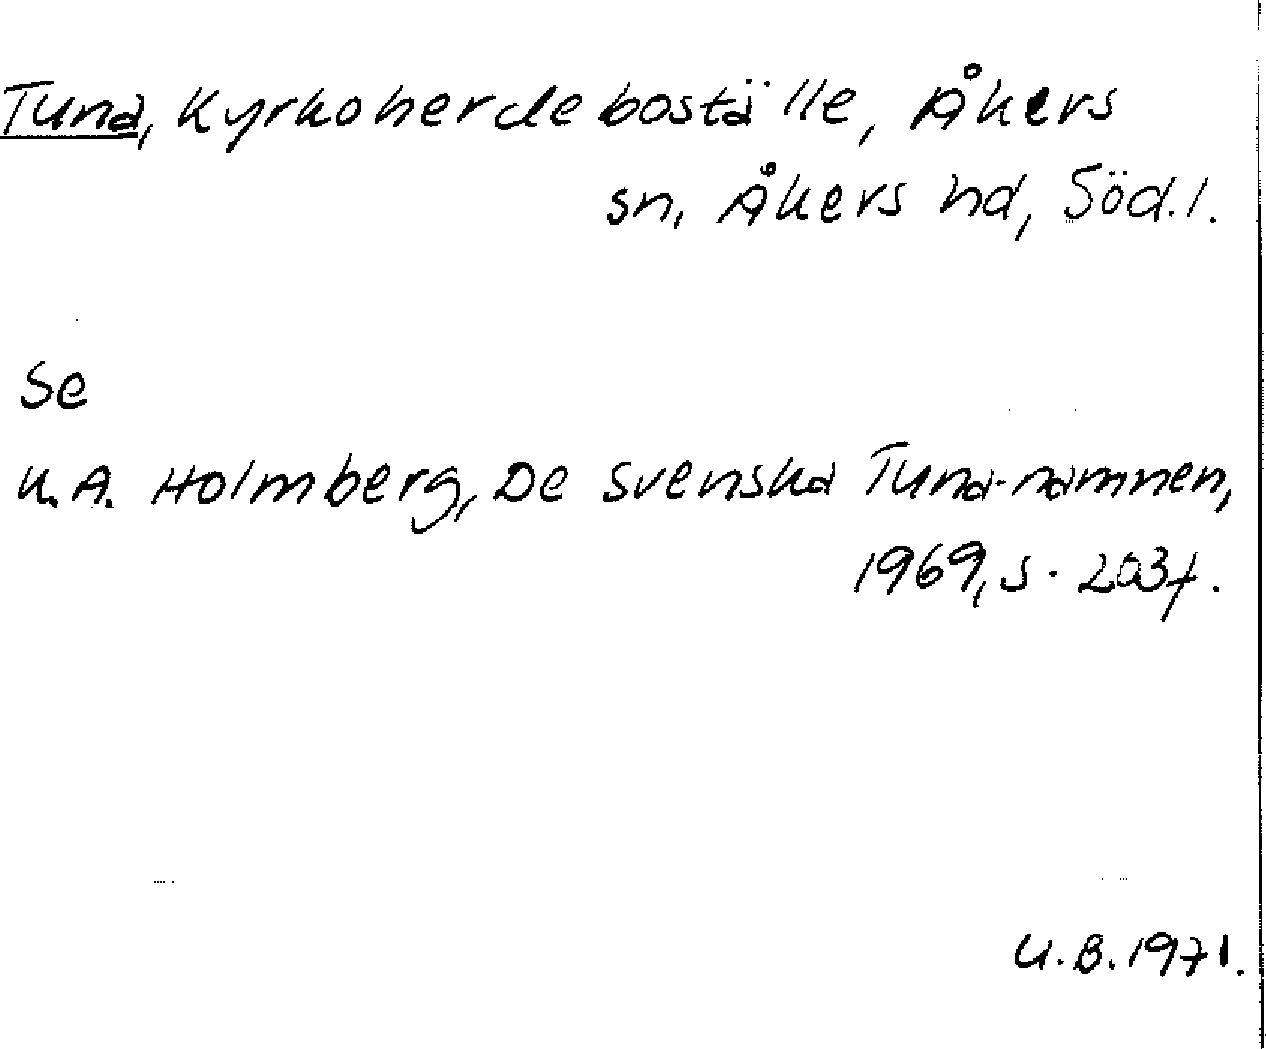 Tuna, Kyrkoherdeboställe, Åkers
sn, Åkers hd, Söd.l.
Se
K.A. Holmberg, De svenska Tuna-namnen,
1969, s. 203f.
U.B. 1971.